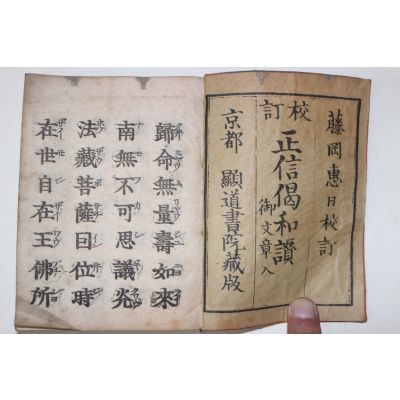 藤岡惠日校訂
校訂
正信偈和讃
御文章入
京都 顯道書院藏版
歸命無量壽如來
南無不可思議光
法藏菩薩因位時
在世自在王佛所